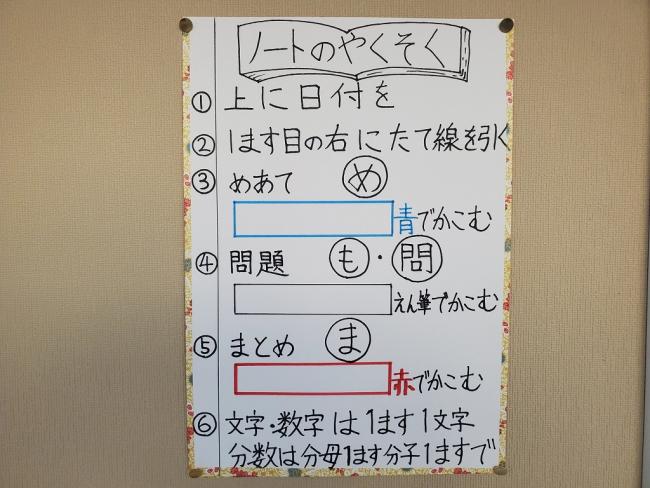 ノートのやくそく
① 上に日付を
② 1ます目の右にたて線を引く
③ めあて め
青でかこむ
④ 問題 も・問
えん筆でかこむ
⑤ まとめ ま
赤でかこむ
⑥ 文字・数字は1ます1文字
分数は分母1ます分子1ますで